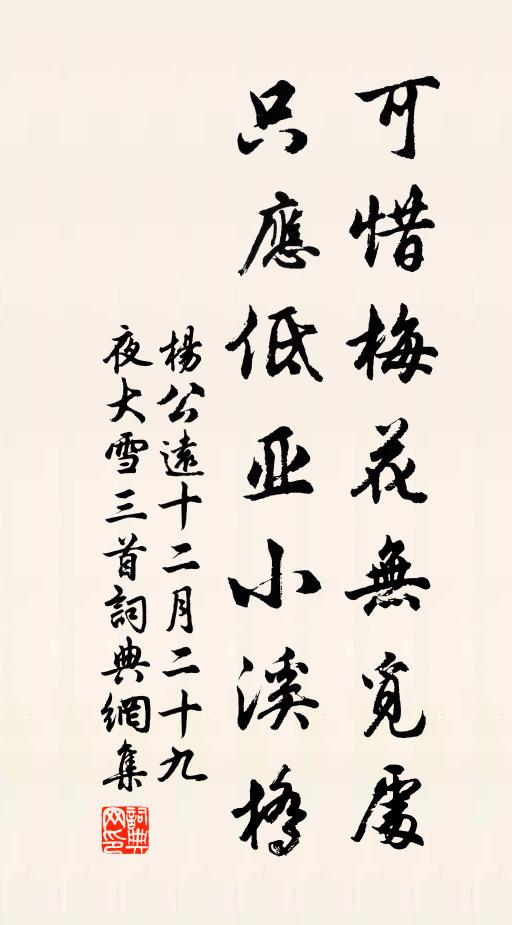 可惜梅花無覓處
只應低亚小溪橋
楊公遠十二月二十九
夜大雪三首詞典網集
詞典網印